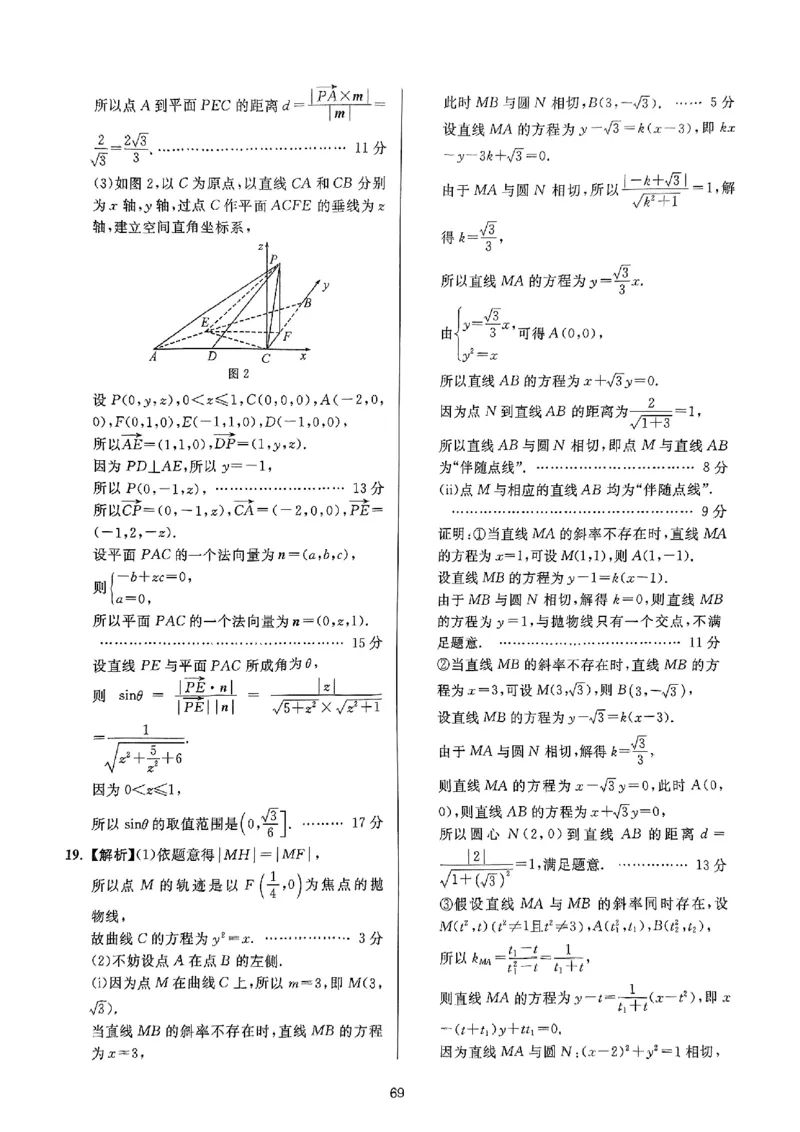 所以点 A 到平面 PEC 的距离 d=|\overrightarrow{PA}×m|/|m|=
2/√3=2√3/3. …………………………………… 11 分
(3)如图 2,以 C 为原点,以直线 CA 和 CB 分别
为 x 轴,y 轴,过点 C 作平面 ACFE 的垂线为 z
轴,建立空间直角坐标系,
z
P
y
B
E
F
A D C x
图 2
设 P(0,y,z),0<z≤1,C(0,0,0),A(-2,0,
0),F(0,1,0),E(-1,1,0),D(-1,0,0),
所以\overrightarrow{AE}=(1,1,0),\overrightarrow{DP}=(1,y,z).
因为 PD⊥AE,所以 y=-1,
所以 P(0,-1,z), …………………… 13 分
所以\overrightarrow{CP}=(0,-1,z),\overrightarrow{CA}=(-2,0,0),\overrightarrow{PE}=
(-1,2,-z).
设平面 PAC 的一个法向量为 n=(a,b,c),
则{-b+zc=0,
a=0,
所以平面 PAC 的一个法向量为 n=(0,z,1).
……………………………………… 15 分
设直线 PE 与平面 PAC 所成角为 θ,
则 sinθ = |\overrightarrow{PE}·n|/(|\overrightarrow{PE}||n|) = |z|/(√(5+z²)×√(z²+1))
=1/√(z²+5/z²+6).
因为 0<z≤1,
所以 sinθ 的取值范围是(0,√3/6]. ……… 17 分
19.【解析】(1)依题意得|MH|=|MF|,
所以点 M 的轨迹是以 F(1/4,0)为焦点的抛
物线,
故曲线 C 的方程为 y²=x. ……………… 3 分
(2)不妨设点 A 在点 B 的左侧.
(i)因为点 M 在曲线 C 上,所以 m=3,即 M(3,
√3).
当直线 MB 的斜率不存在时,直线 MB 的方程
为 x=3,
此时 MB 与圆 N 相切,B(3,-√3). …… 5 分
设直线 MA 的方程为 y-√3=k(x-3),即 kx
-y-3k+√3=0.
由于 MA 与圆 N 相切,所以|-k+√3|/√(k²+1)=1,解
得 k=√3/3,
所以直线 MA 的方程为 y=√3/3 x.
由{y=√3/3 x,
y²=x
可得 A(0,0),
所以直线 AB 的方程为 x+√3y=0.
因为点 N 到直线 AB 的距离为2/√(1+3)=1,
所以直线 AB 与圆 N 相切,即点 M 与直线 AB
为“伴随点线”. ………………………… 8 分
(ii)点 M 与相应的直线 AB 均为“伴随点线”.
……………………………………… 9 分
证明:①当直线 MA 的斜率不存在时,直线 MA
的方程为 x=1,可设 M(1,1),则 A(1,-1).
设直线 MB 的方程为 y-1=k(x-1).
由于 MB 与圆 N 相切,解得 k=0,则直线 MB
的方程为 y=1,与抛物线只有一个交点,不满
足题意. …………………………… 11 分
②当直线 MB 的斜率不存在时,直线 MB 的方
程为 x=3,可设 M(3,√3),则 B(3,-√3),
设直线 MB 的方程为 y-√3=k(x-3).
由于 MA 与圆 N 相切,解得 k=√3/3,
则直线 MA 的方程为 x-√3y=0,此时 A(0,
0),则直线 AB 的方程为 x+√3y=0,
所以圆心 N(2,0)到直线 AB 的距离 d=
|2|/√(1+(√3)²)=1,满足题意. …………… 13 分
③假设直线 MA 与 MB 的斜率同时存在,设
M(t²,t)(t²≠1且t²≠3),A(t₁²,t₁),B(t₂²,t₂),
所以 k_{MA}=(t₁-t)/(t₁²-t)=1/(t₁+t),
则直线 MA 的方程为 y-t=1/(t₁+t)(x-t²),即 x
-(t+t₁)y+tt₁=0,
因为直线 MA 与圆 N:(x-2)²+y²=1 相切,
69